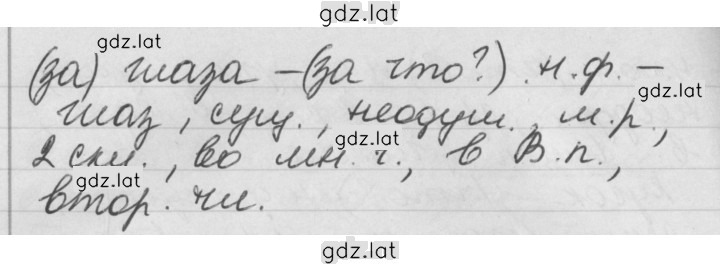 gdz.lat
gdz.lat
(за) глаза – (за что?) н.ф. –
gdz.lat
глаз, сущ., неодуш., м.р.,
gdz.lat
2 скл., во мн. ч., в В.п.,
gdz.lat
втор. чл.
gdz.lat